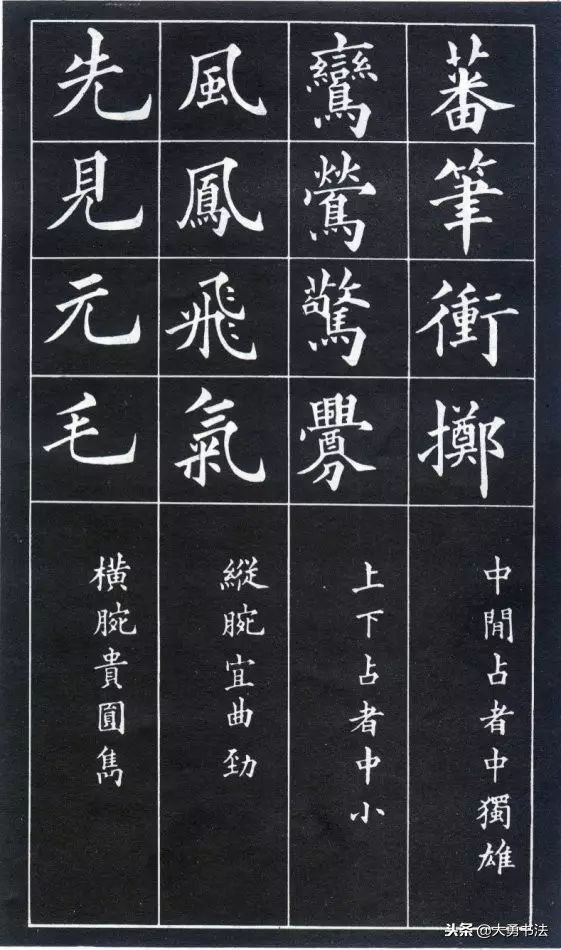 蕃筆衝擲
中閒占者中獨雄
鸞鶯驚釁
上下占者中小
風鳳飛氣
縱腕宜曲勁
先見元毛
橫腕貴圓雋
头条 @大勇书法